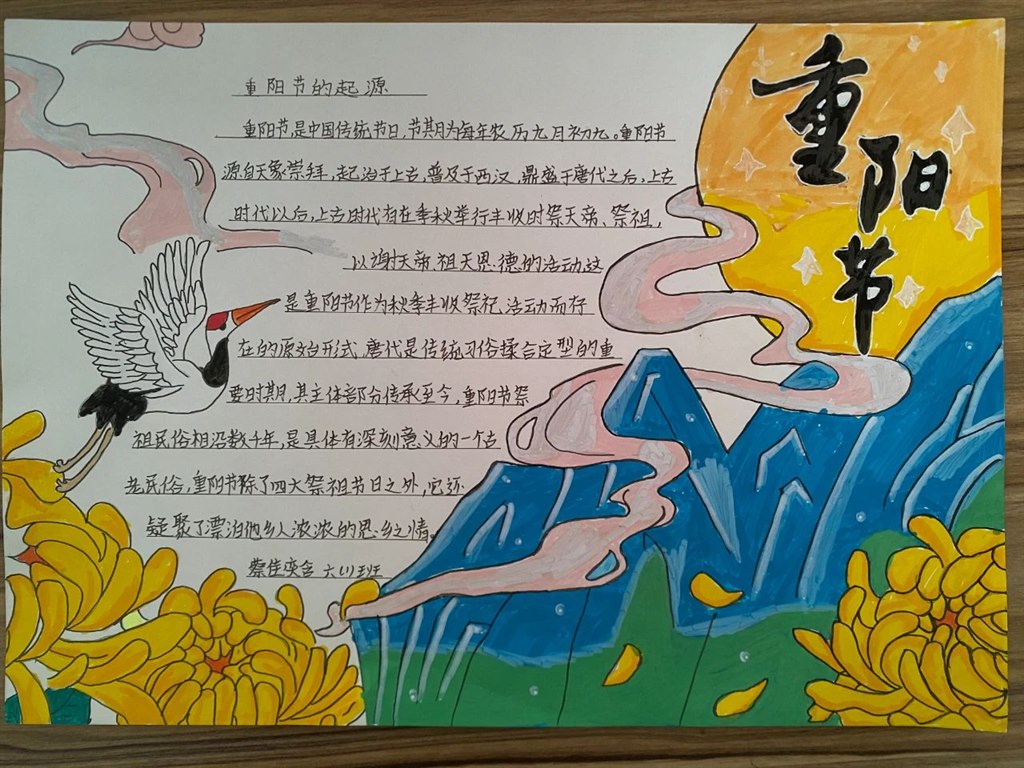 重阳节
重阳节的起源
重阳节,是中国传统节日,节期为每年农历九月初九。重阳节
源自天象崇拜,起治于上古,普及于西汉,鼎盛于唐代之后,上古
时代以后,上古时代有在季秋举行丰收时祭天帝、祭祖,
以谢天帝.祖天恩.德的活动,这
是重阳节作为秋季丰收祭祀.活动而存
在的原始形式,唐代是传统习俗揉合定型的重
要时期,其主体部分传承至今,重阳节祭
祖民俗相沿数千年,是具体有深刻意义的一个古
老民俗,重阳节除了四大祭祖节日之外,它还
疑聚了漂泊他乡人浓浓的思乡之情。
蔡佳 六(1)班